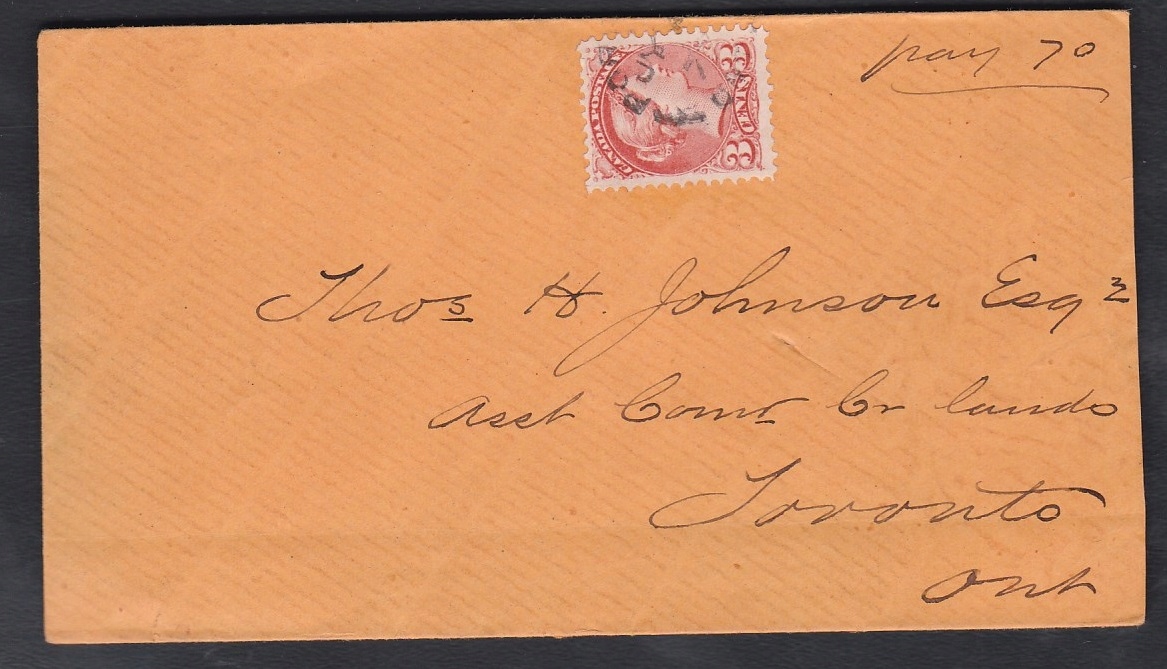 pay 70
CANADA POSTAGE
3 CENTS 3
Thos H. Johnson Esqr
Asst Comr Cr lands
Toronto
Ont